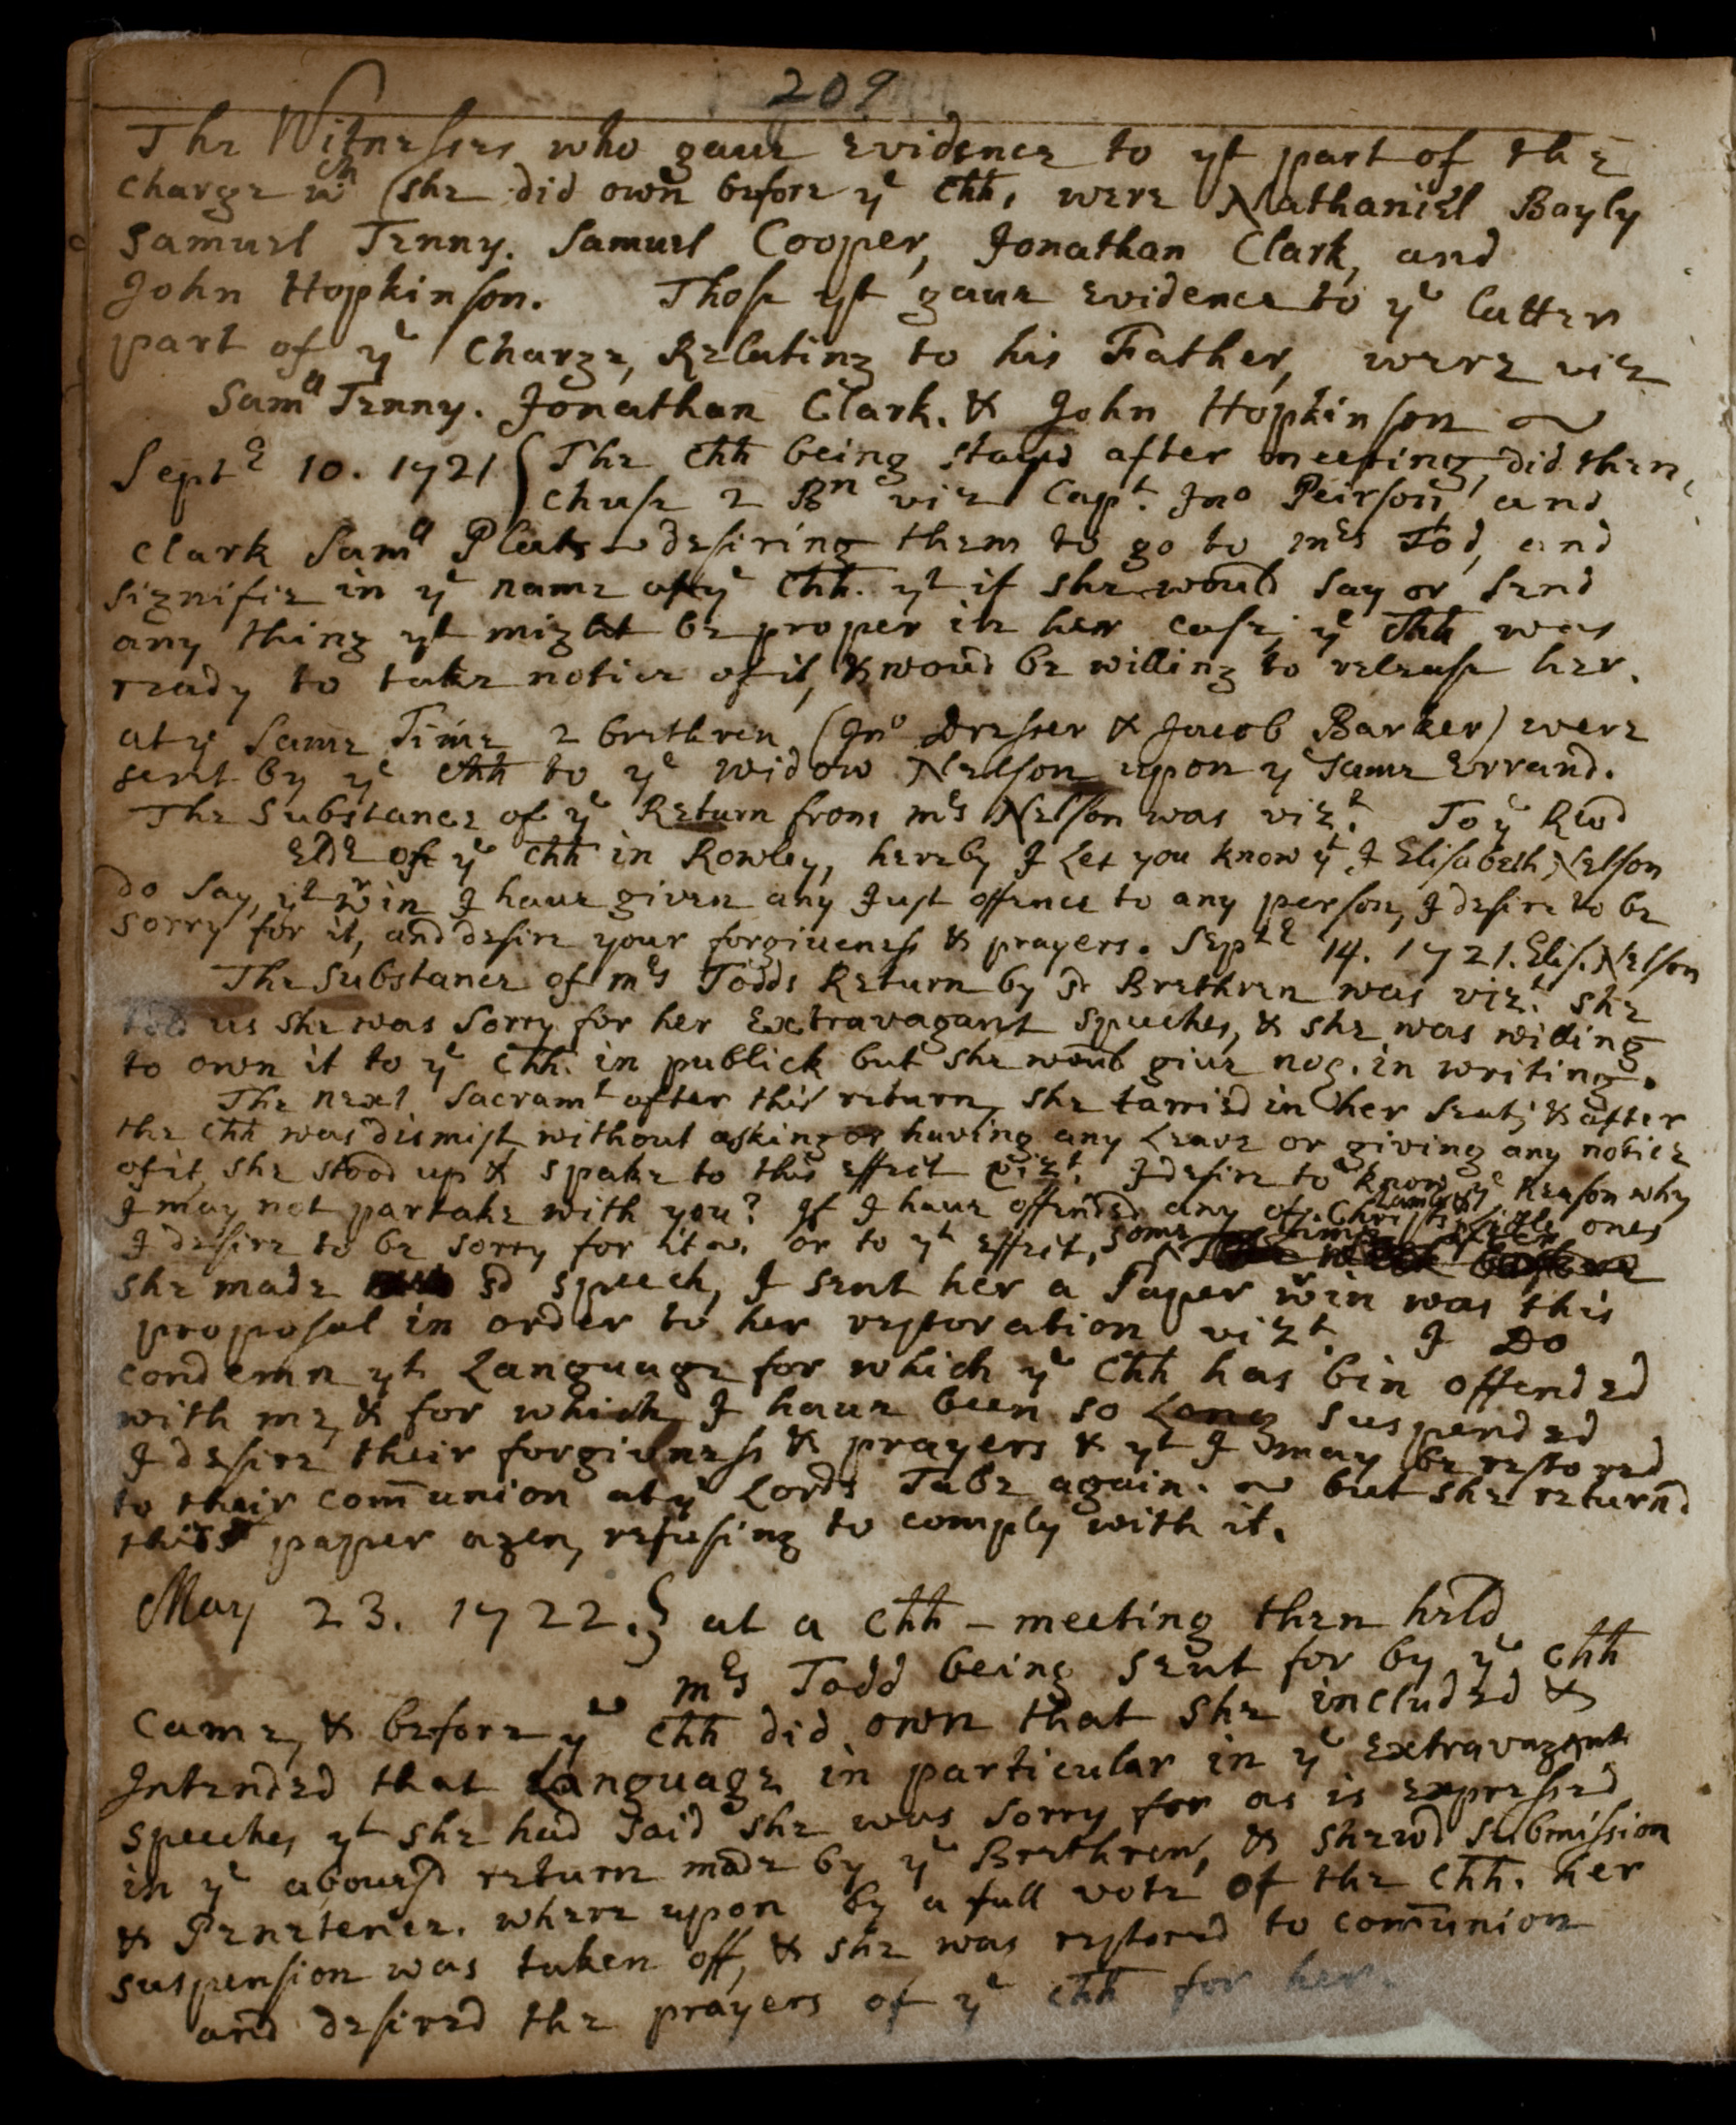 209
The Witnesses who gaue Evidence to yt part of the
charge wch she did own before ye Chh, were Nathaniel Bayly
Samuel Jenny. Samuel Cooper, Jonathan Clark, and
John Hopkinson. Those yt gaue Evidence to ye latter
part of ye Charge, Relating to his Father, were viz
Samll Jenny. Jonathan Clark. & John Hopkinson ~
Septe 10. 1721 { The Chh being stayed after meeting, did then
chuse 2 Bn viz Capt. Jno Peirson and
Clark Samll Plats ~ desiring them to go to mrs Tod, and
signifie in ye name of ye Chh. yt if she would say or send
any thing yt might be proper in her case; ye Chh was
ready to take notice of it, & woud be willing to release her.
at ye same Time 2 brethren (Jno Dresser & Jacob Barker) were
sent by ye chh to ye widow Nelson upon ye same Errand.
The Substance of ye Return from mrs Nelson was vizt. To ye Revd
Elde of ye Chh in Rowley, hereby I Let you know yt I Elisabeth Nelson
do say, yt wrin I haue given any Just offence to any person, I desire to be
sorry for it, and desire your forgiueness & prayers. Septe 14. 1721. Elis. Nelson
The Substance of mrs Todds Return by sd Brethren was vizt. she
told us she was sorry for her Extravagant speeches, & she was willing
to own it to ye Chh. in publick but she would giue nog. in writing.
The next Sacramt after this return, she tarried in her seat; & after
the Chh was dismist without asking or having any Leave or giving any notice
of it, she stood up & spake to this effect vizt. I desire to know ye Reason why
I may not partake with you? If I haue offended any of Christs Lambs or Little ones
I desire to be sorry for it ~. or to yt effect, some time after
she made sd speech, I sent her a Paper wrin was this
proposal in order to her restoration vizt. I Do
condemn yt Language for which ye Chh has bin offended
with me, & for which I haue been so Long suspended
I desire their forgiveness & prayers & yt I may be restored
to their com̄union at ye Lords Table again. ~ but she returnd
this paper agen, refusing to comply with it.
May 23. 1722.} at a Chh - meeting then held
mrs Todd being sent for by ye chh
came, & before ye Chh did own that she included &
Intended that Language in particular in ye Extravagent
speeches yt she had said she was sorry for as is expressed
in ye abouesd return made by ye Brethren, & shewd submission
& Penetence. where upon by a full vote of the Chh. her
suspension was taken off, & she was restored to com̄union
and desired the prayers of ye chh for her.